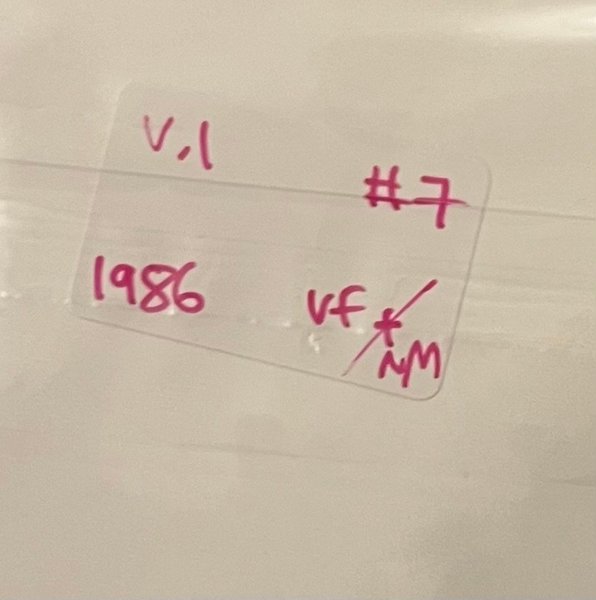 V.1
#7
1986
VF+/NM